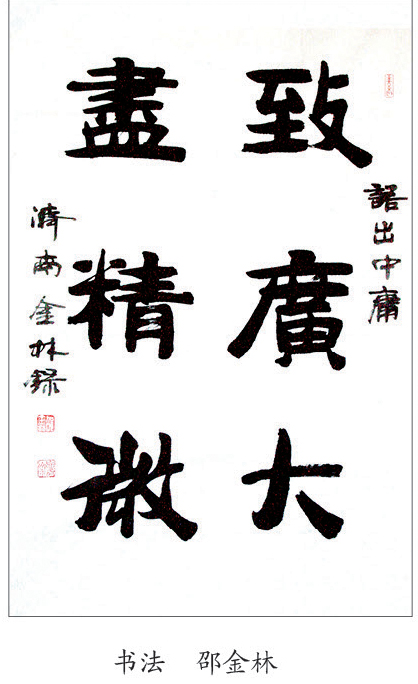 致廣大
盡精微
語出中庸
濟南金林錄
书法 邵金林